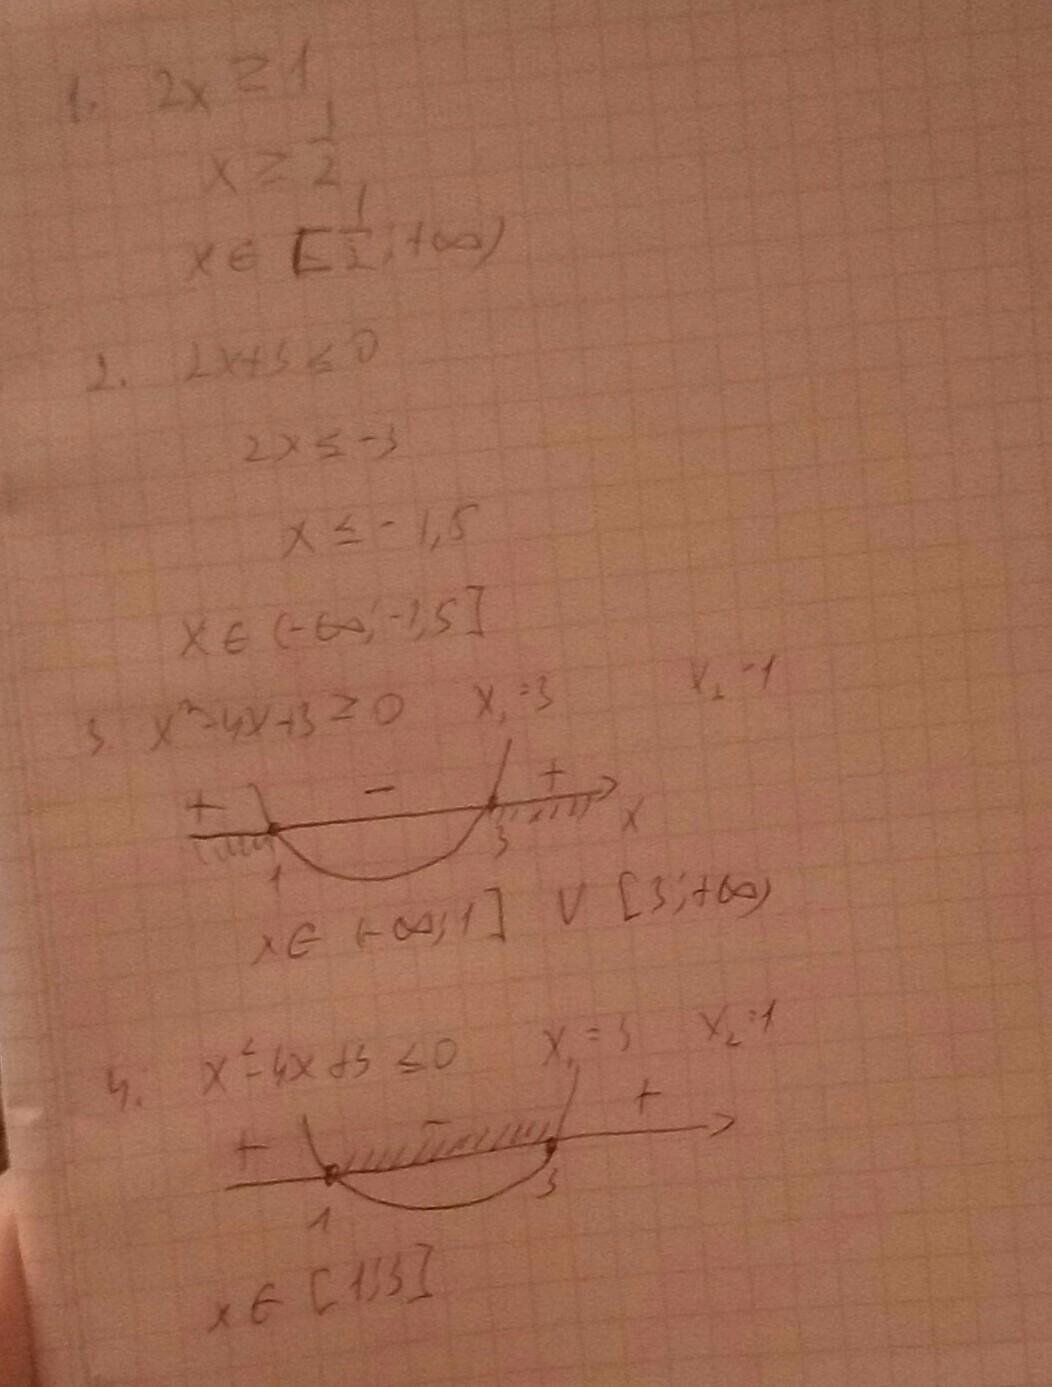 1. 2x ≥ 1
x ≥ 1/2
x ∈ [1/2; +∞)
2. 2x+3 ≤ 0
2x ≤ -3
x ≤ -1,5
x ∈ (-∞; -1,5]
3. x²-4x+3 ≥ 0 x₁=3 x₂=1
+ - +
1 3 x
x ∈ (-∞; 1] ∪ [3; +∞)
4. x²-4x+3 ≤ 0 x₁=3 x₂=1
+ - +
1 3
x ∈ [1; 3]